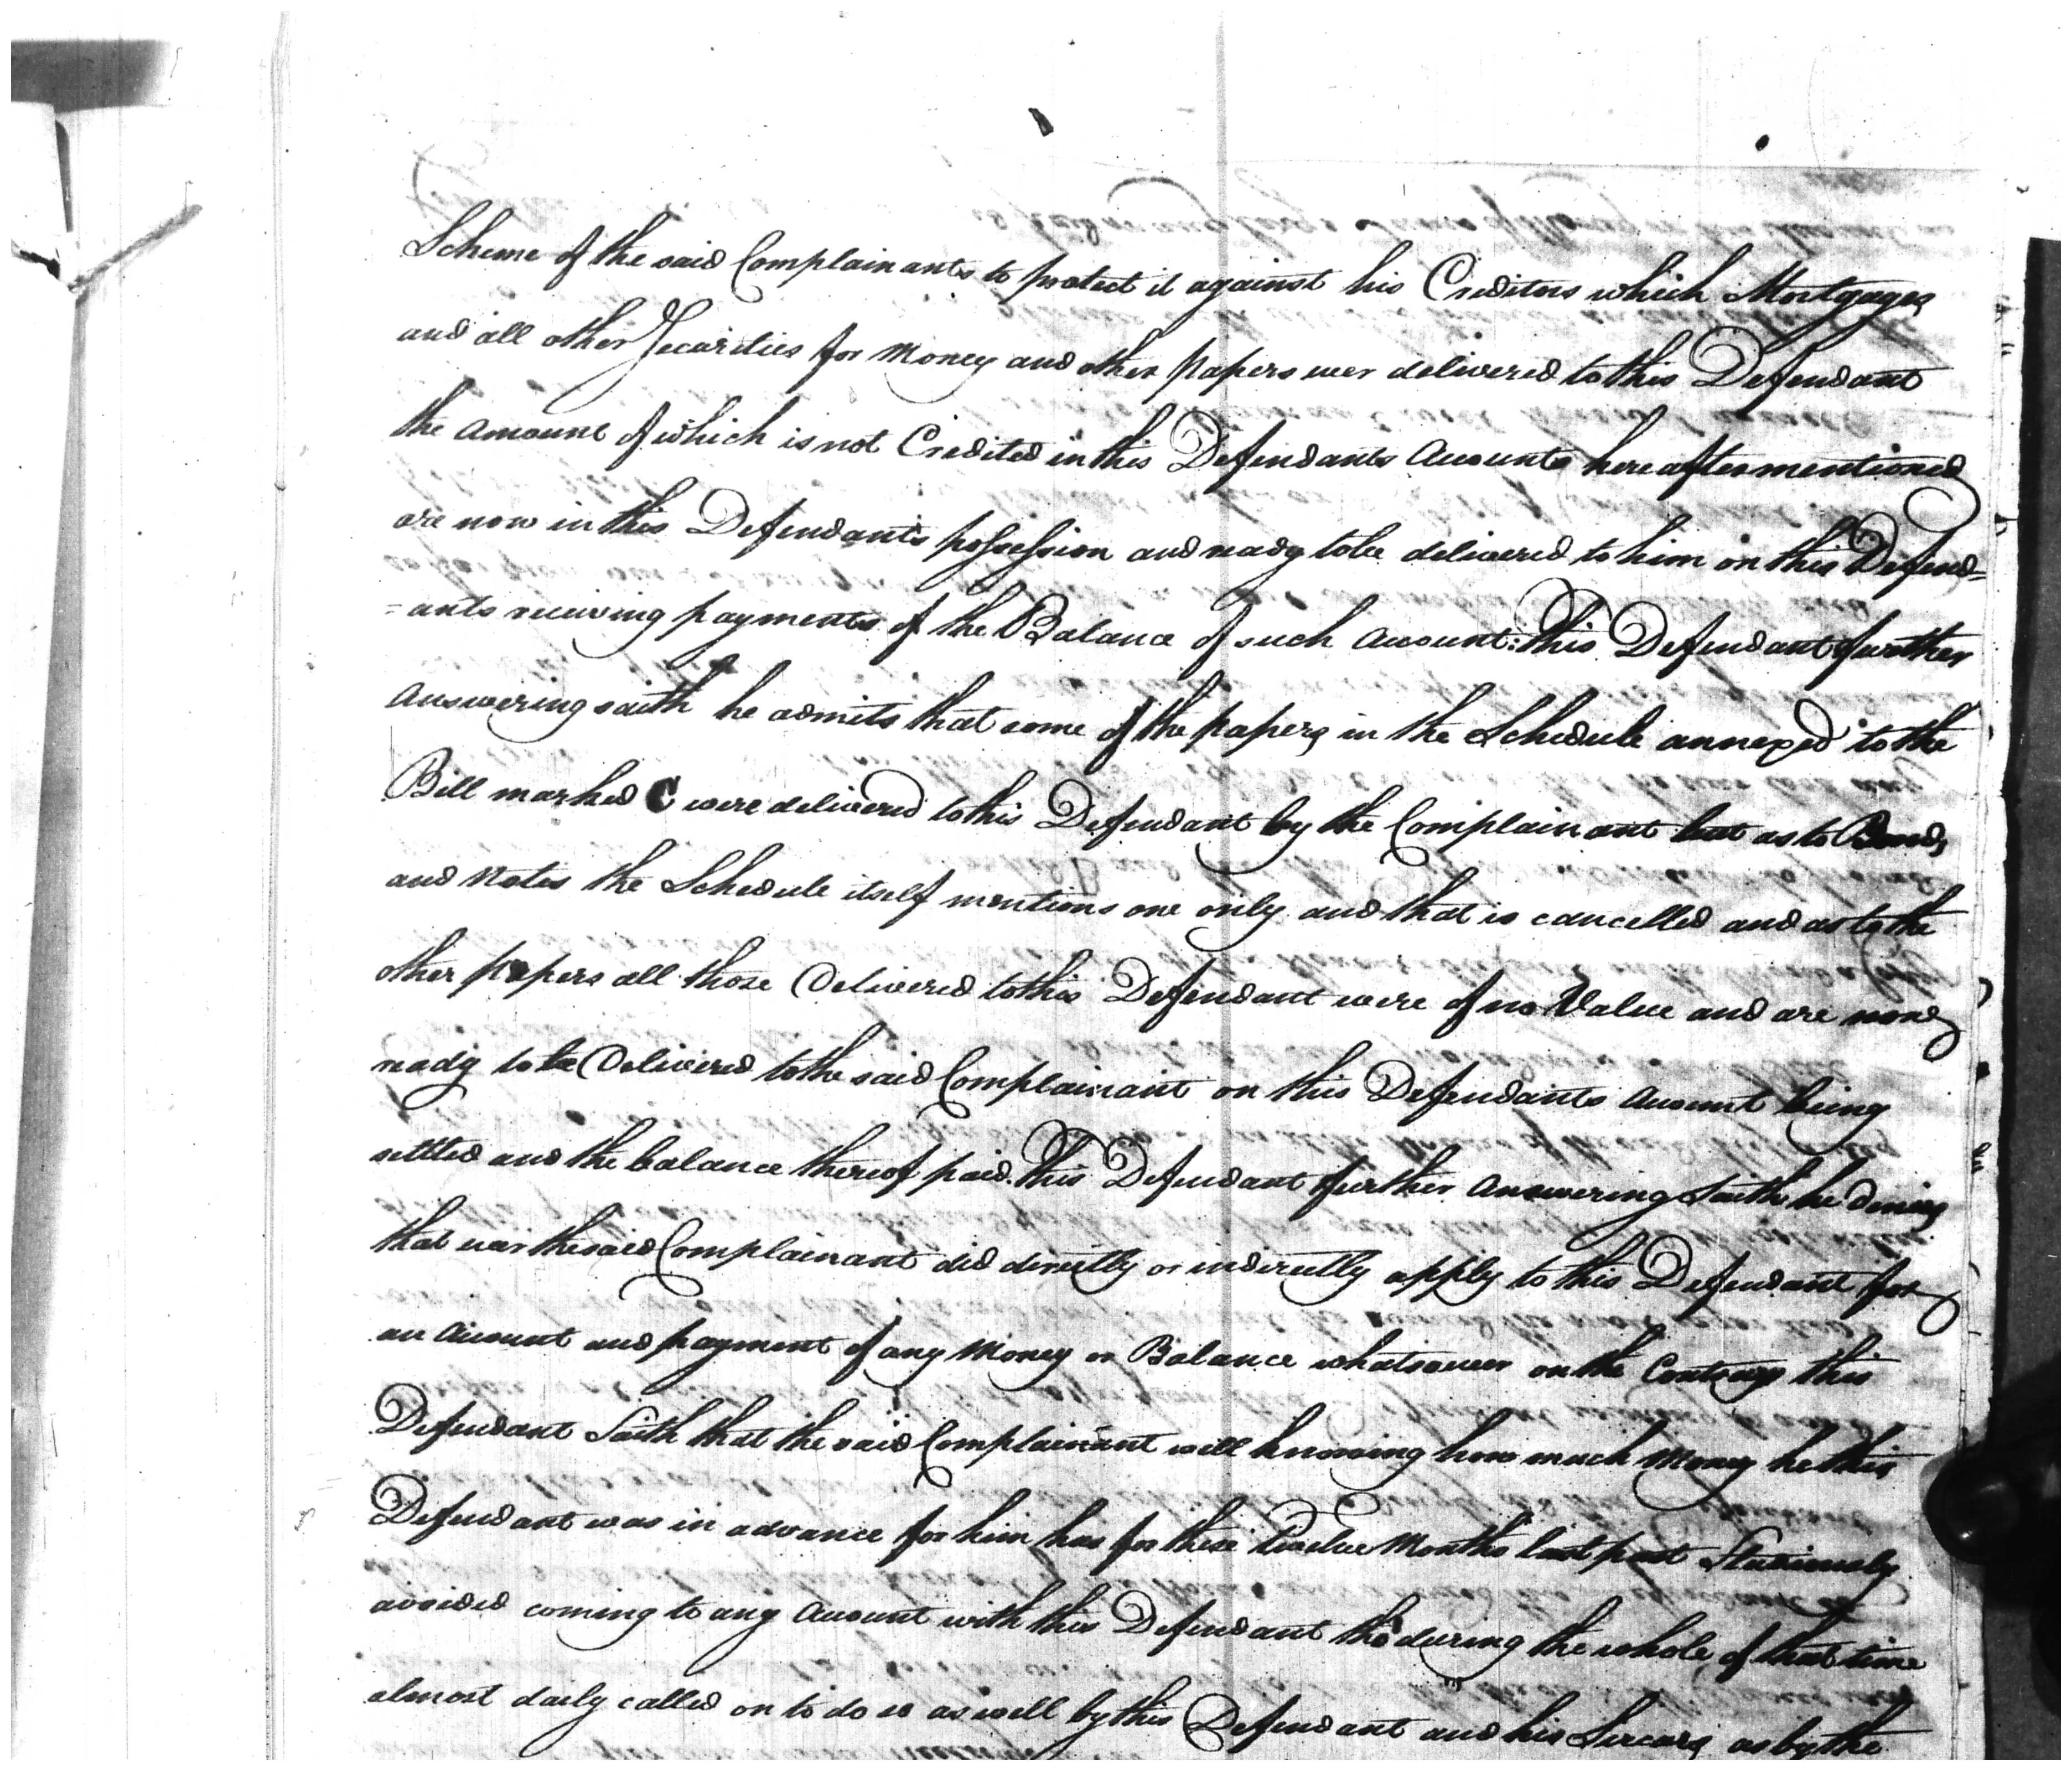 Scheme of the said Complainants to protect it against his Creditors which Mortgages
and all other Securities for Money and other papers wer delivered to this Defendant
the Amount of which is not Credited in this Defendants Accounts hereaftermentioned
are now in this Defendants possession and ready to be delivered to him on this Defend=
=ants receiving payments of the Balance of such Account: this Defendant further
Answering saith he admits that some of the papers in the Schedule annexed to the
Bill marked C were delivered to this Defendant by the Complainant but as to Bonds
and Notes the Schedule itself mentions one only and that is cancelled and as to the
other papers all those Delivered to this Defendant were of no Value and are now
ready to be Delivered to the said Complainant on this Defendants Account being
settled and the balance thereof paid. this Defendant further Answering Saith he denies
that ever the said Complainant did directly or indirectly apply to this Defendant for
an Account and payment of any Money or Balance whatsoever on the Contrary this
Defendant Saith that the said Complainant well knowing how much Money he this
Defendant was in advance for him has for these twelve Months last past Studiously
avoided coming to any Account with this Defendant tho during the whole of that time
almost daily called on to do so as well by this Defendant and his Sircars as by the